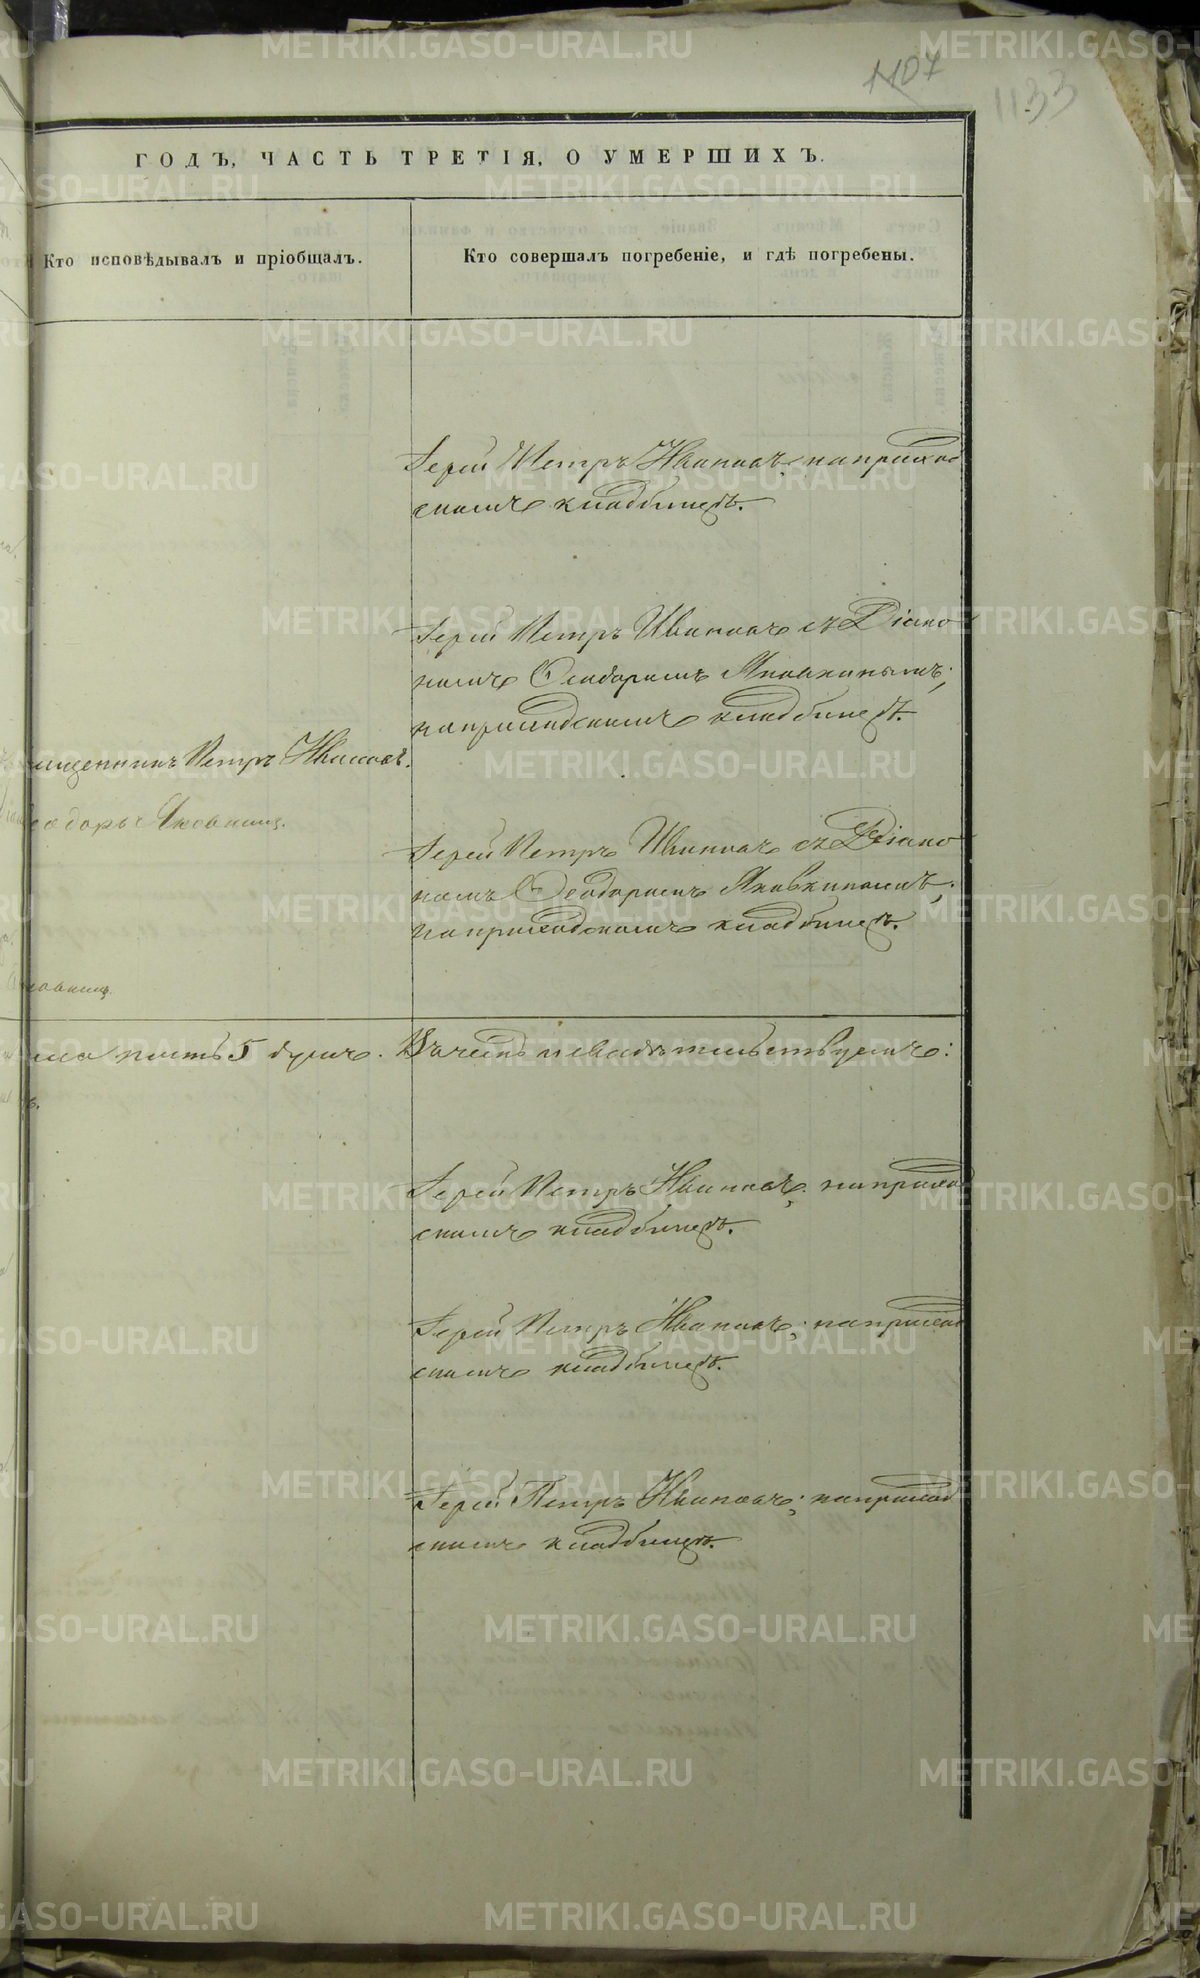 1107
1133
ГОДЪ, ЧАСТЬ ТРЕТІЯ, О УМЕРШИХЪ.
Кто исповѣдывалъ и пріобщалъ.
Кто совершалъ погребеніе, и гдѣ погребены.
Іерей Петръ Ивановъ; на приход
скомъ кладбищѣ.
Іерей Петръ Ивановъ съ Діако
номъ Ѳеодоромъ Яковкинымъ;
на приходскомъ кладбищѣ.
щенникъ Петръ Ивановъ.
еодоръ Яковкинъ.
Іерей Петръ Ивановъ съ Діако
номъ Ѳеодоромъ Яковкиномъ;
на приходскомъ кладбищѣ.
овкинъ.
пять 5 душъ. Въ чемъ и свидѣтельствуемъ:
Іерей Петръ Ивановъ; на приход
скомъ кладбищѣ.
Іерей Петръ Ивановъ; на приход
скомъ кладбищѣ.
Іерей Петръ Ивановъ; на приход
скомъ кладбищѣ.
METRIKI.GASO-URAL.RU